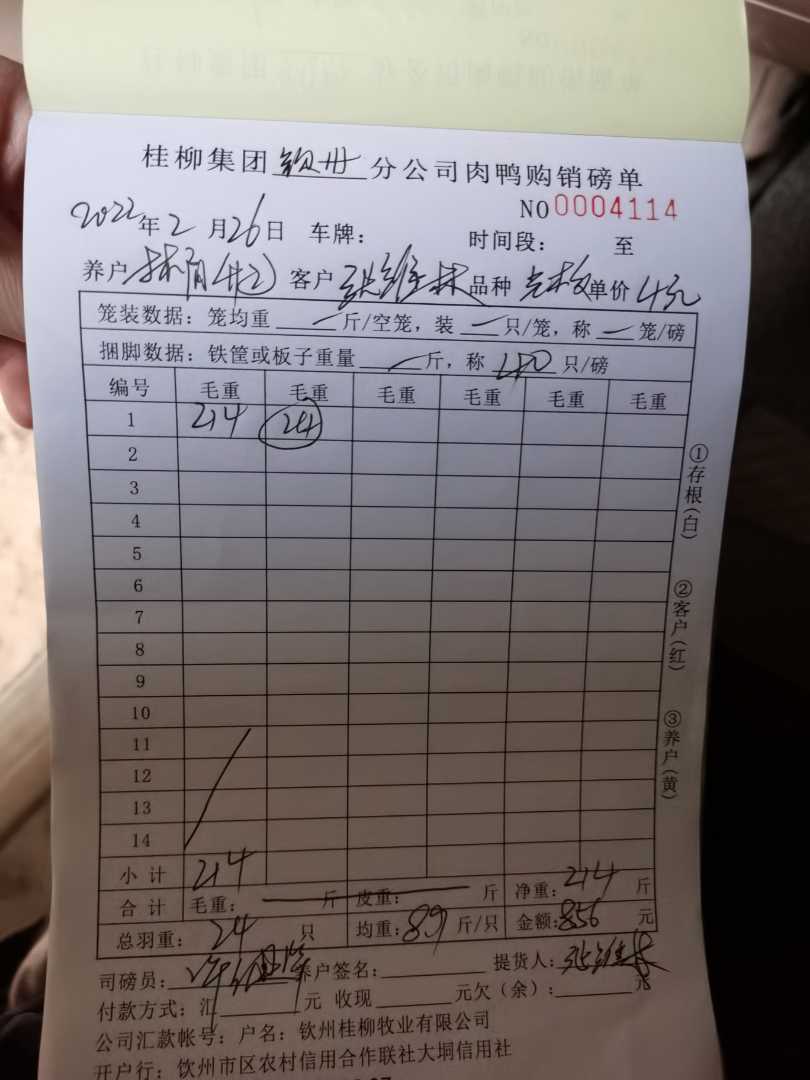 桂柳集团钦州分公司肉鸭购销磅单
NO0004114
2022年2月26日 车牌： 时间段： 至
养户 客户张维林品种 单价4元
笼装数据：笼均重 斤/空笼，装 只/笼，称 笼/磅
捆脚数据：铁筐或板子重量 斤，称 只/磅
编号 毛重 毛重 毛重 毛重 毛重 毛重
1 214 24
2
3
4
5
6
7
8
9
10
11
12
13
14
小计 214
合计 毛重： 斤 皮重： 斤 净重：214 斤
总羽重：24 只 均重：89 斤/只 金额：856 元
司磅员： 养户签名： 提货人：张维林
付款方式：汇 元 收现 元欠（余）： 元
公司汇款帐号：户名：钦州桂柳牧业有限公司
开户行：钦州市区农村信用合作联社大垌信用社
①存根(白)
②客户(红)
③养户(黄)